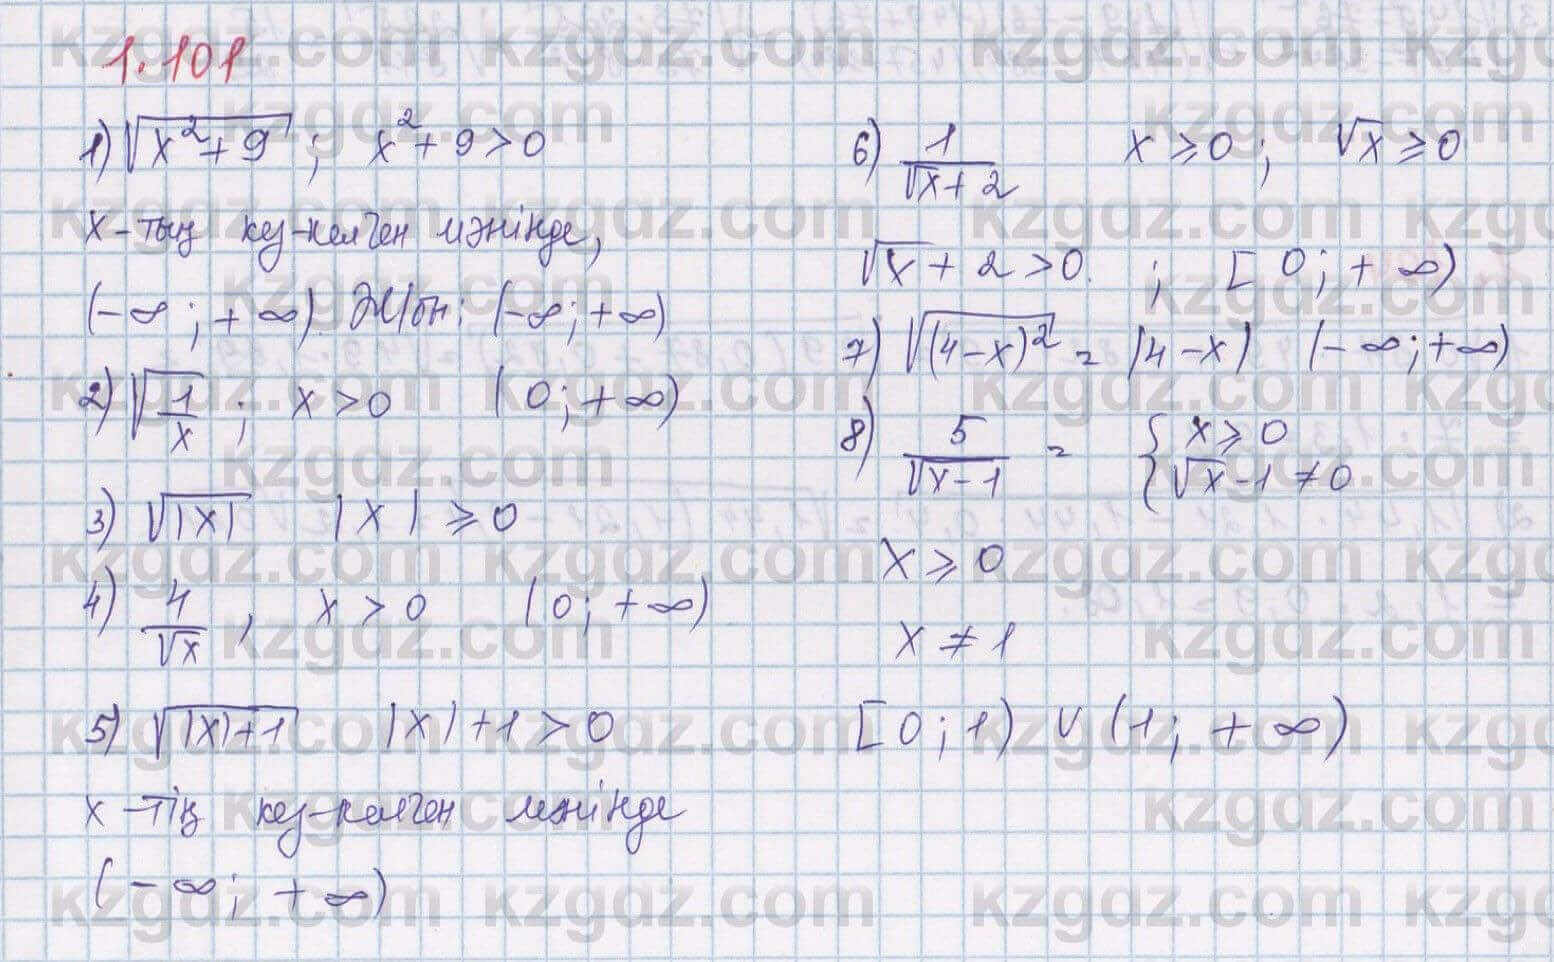 1.101
1) √(x²+9) ; x²+9>0
x-тың кез-келген мәнінде,
(-∞;+∞) Ж/бн: (-∞;+∞)
2) √(1/x) ; x>0 (0;+∞)
3) √|x| |x|≥0
4) 4/√x , x>0 (0;+∞)
5) √(|x|+1) |x|+1>0
x-тің кез-келген мәнінде
(-∞; +∞)
6) 1/(√x+2) x≥0; √x≥0
√x+2>0. ; [0;+∞)
7) √((4-x)²) = |4-x| (-∞;+∞)
8) 5/(√x-1) = { x≥0
√x-1≠0
x≥0
x≠1
[0;1) ∪ (1; +∞)
kzgdz.com